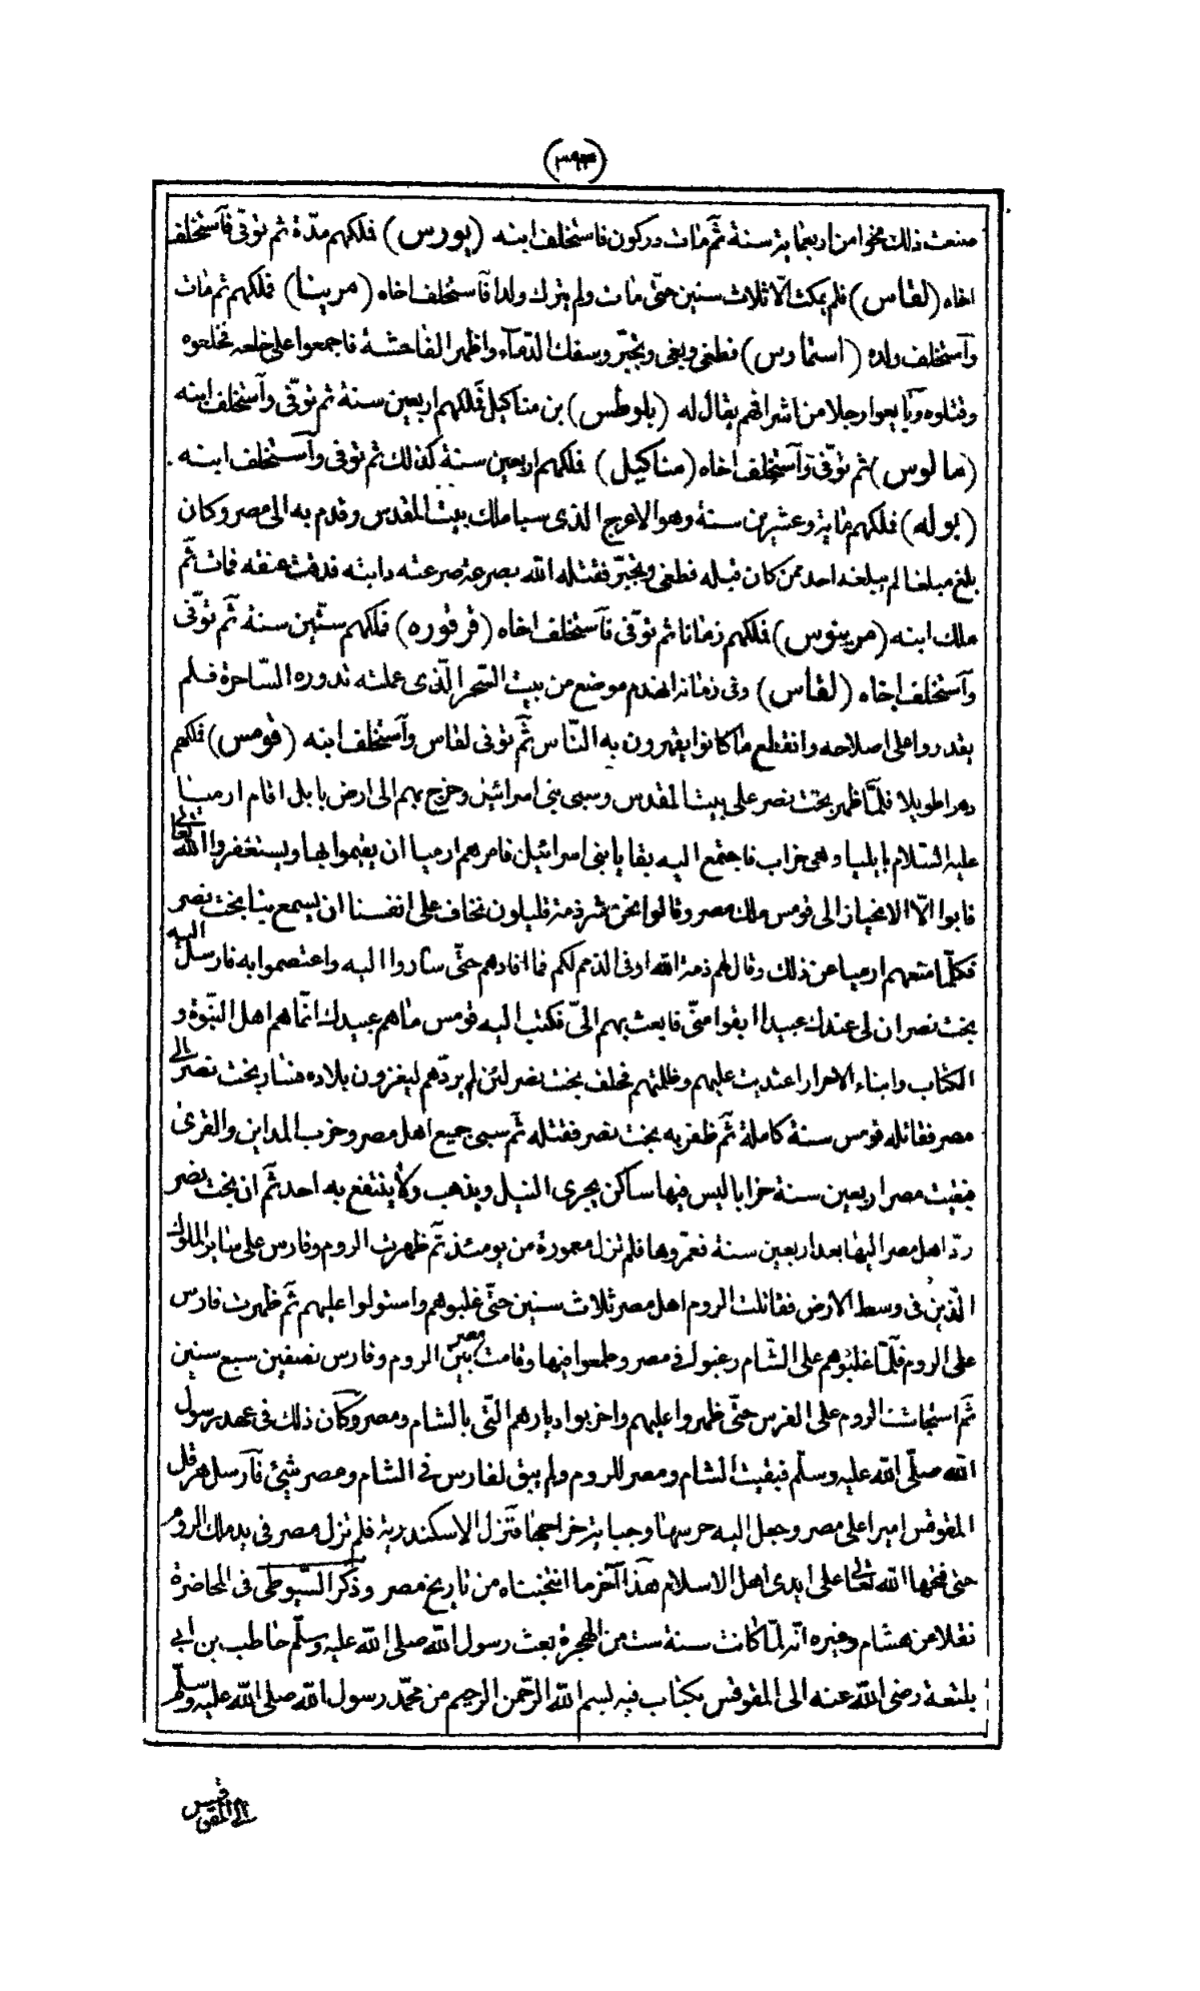 (٣٩٣)
صنعت ذلك نحوا من اربعماية سنة ثم مات دركون فاستخلف ابنه (بورس) فملكهم مدّة ثم توفّى فآستخلف
اخاه (لقاس) فلم يمكث الّا ثلاث سنين حتّى مات ولم يترك ولدا فآستخلف اخاه (مرينا) فملكهم ثم مات
وآستخلف ولده (استمارس) فطغى وبغى وتجبّر وسفك الدّمآء واظهر الفاحشة فاجمعوا على خلعه فخلعوه
وقتلوه وبايعوا رجلا من اشرافهم يقال له (بلوطس) بن مناكيل فملكهم اربعين سنة ثم توفّى وآستخلف ابنه
(مالوس) ثم توفّى وآستخلف اخاه (مناكيل) فملكهم اربعين سنة كذلك ثم توفى وآستخلف ابنه
(بوله) فملكهم ماية وعشرين سنة وهو الاعرج الذى سبا ملك بيت المقدس وقدم به الى مصر وكان
بلغ مبلغا لم يبلغه احد ممن كان قبله فطغى وتجبّر فقتله الله بصرعة صرعته دابته فدقت عنقه فمات ثم
ملك ابنه (مرينوس) فملكهم زمانا ثم توفّى فآستخلف اخاه (قرقوره) فملكهم ستّين سنة ثم توفّى
وآستخلف اخاه (لقاس) وفى زمانه انهدم موضع من بيت السّحر الّذى عملته تدوره السّاحرة فلم
يقدروا على اصلاحه وانقطع ما كانوا يقهرون به النّاس ثم توفى لقاس وآستخلف ابنه (قومس) فملكهم
دهرا طويلا فلمّا ظهر بخت نصر على بيت المقدس وسبى بنى اسرائيل وخرج بهم الى ارض بابل اقام ارميا
عليه السّلام بايليا وهى خراب فاجتمع اليه بقايا بنى اسرائيل فامرهم ارميا ان يقيموا بها ويستغفروا الله تعالى
فابوا الّا الانحياز الى قومس ملك مصر وقالوا نحن شرذمة قليلون نخاف على انفسنا ان يسمع بنا بخت نصر
فكلّما منعهم ارميا عن ذلك وقال لهم ذمة الله اوفى الذمم لكم فما افادهم حتّى ساروا اليه واعتصموا به فارسل اليه
بخت نصر ان لى عندك عبيدا ابقوا منّى فابعث بهم الىّ فكتب اليه قومس ما هم عبيدك انّما هم اهل النّبوة و
الكتاب وابناء الاحرار اعتديت عليهم وظلمتهم فحلف بخت نصر لئن لم يردّهم ليغزون بلاده فسار بخت نصر الى
مصر فقاتله قومس سنة كاملة ثم ظفر به بخت نصر فقتله ثم سبى جميع اهل مصر وخرب المداين والقرى
فبقيت مصر اربعين سنة خرابا ليس فيها ساكن يجرى النيل ويذهب ولا ينتفع به احد ثم ان بخت نصر
ردّ اهل مصر اليها بعد اربعين سنة فعمّروها فلم تزل معمورة من يومئذ ثم ظهرت الروم وفارس على سائر الملوك
الّذين فى وسط الارض فقاتلت الروم اهل مصر ثلاث سنين حتّى غلبوهم واستولوا عليهم ثم ظهرت فارس
على الروم فلمّا غلبوهم على الشّام رغبوا فى مصر وطمعوا فيها وقامت مصر بين الروم وفارس نصفين سبع سنين
ثم استجاشت الروم على الفرس حتّى ظهروا عليهم واخربوا ديارهم الّتى بالشام ومصر وكان ذلك فى عهد رسول
الله صلّى الله عليه وسلّم فبقيت الشام ومصر للروم ولم يبق لفارس فى الشام ومصر شيئ فآرسل هرقل
المقوقس اميرا على مصر وجعل اليه حربها وجباية خراجها فنزل الاسكندرية فلم تزل مصر فى يد ملك الروم
حتى فتحها الله تعالى على ايدى اهل الاسلام هذا آخر ما انتخبناه من تاريخ مصر وذكر السّيوطى فى المحاضرة
نقلا من هشام وغيره انّه لمّا كانت سنة ست من الهجرة بعث رسول الله صلى الله عليه وسلّم حاطب بن ابى
بلتعة رضى الله عنه الى المقوقس بكتاب فيه بسم الله الرّحمن الرحيم من محمّد رسول الله صلى الله عليه وسلّم
الى المقوقس